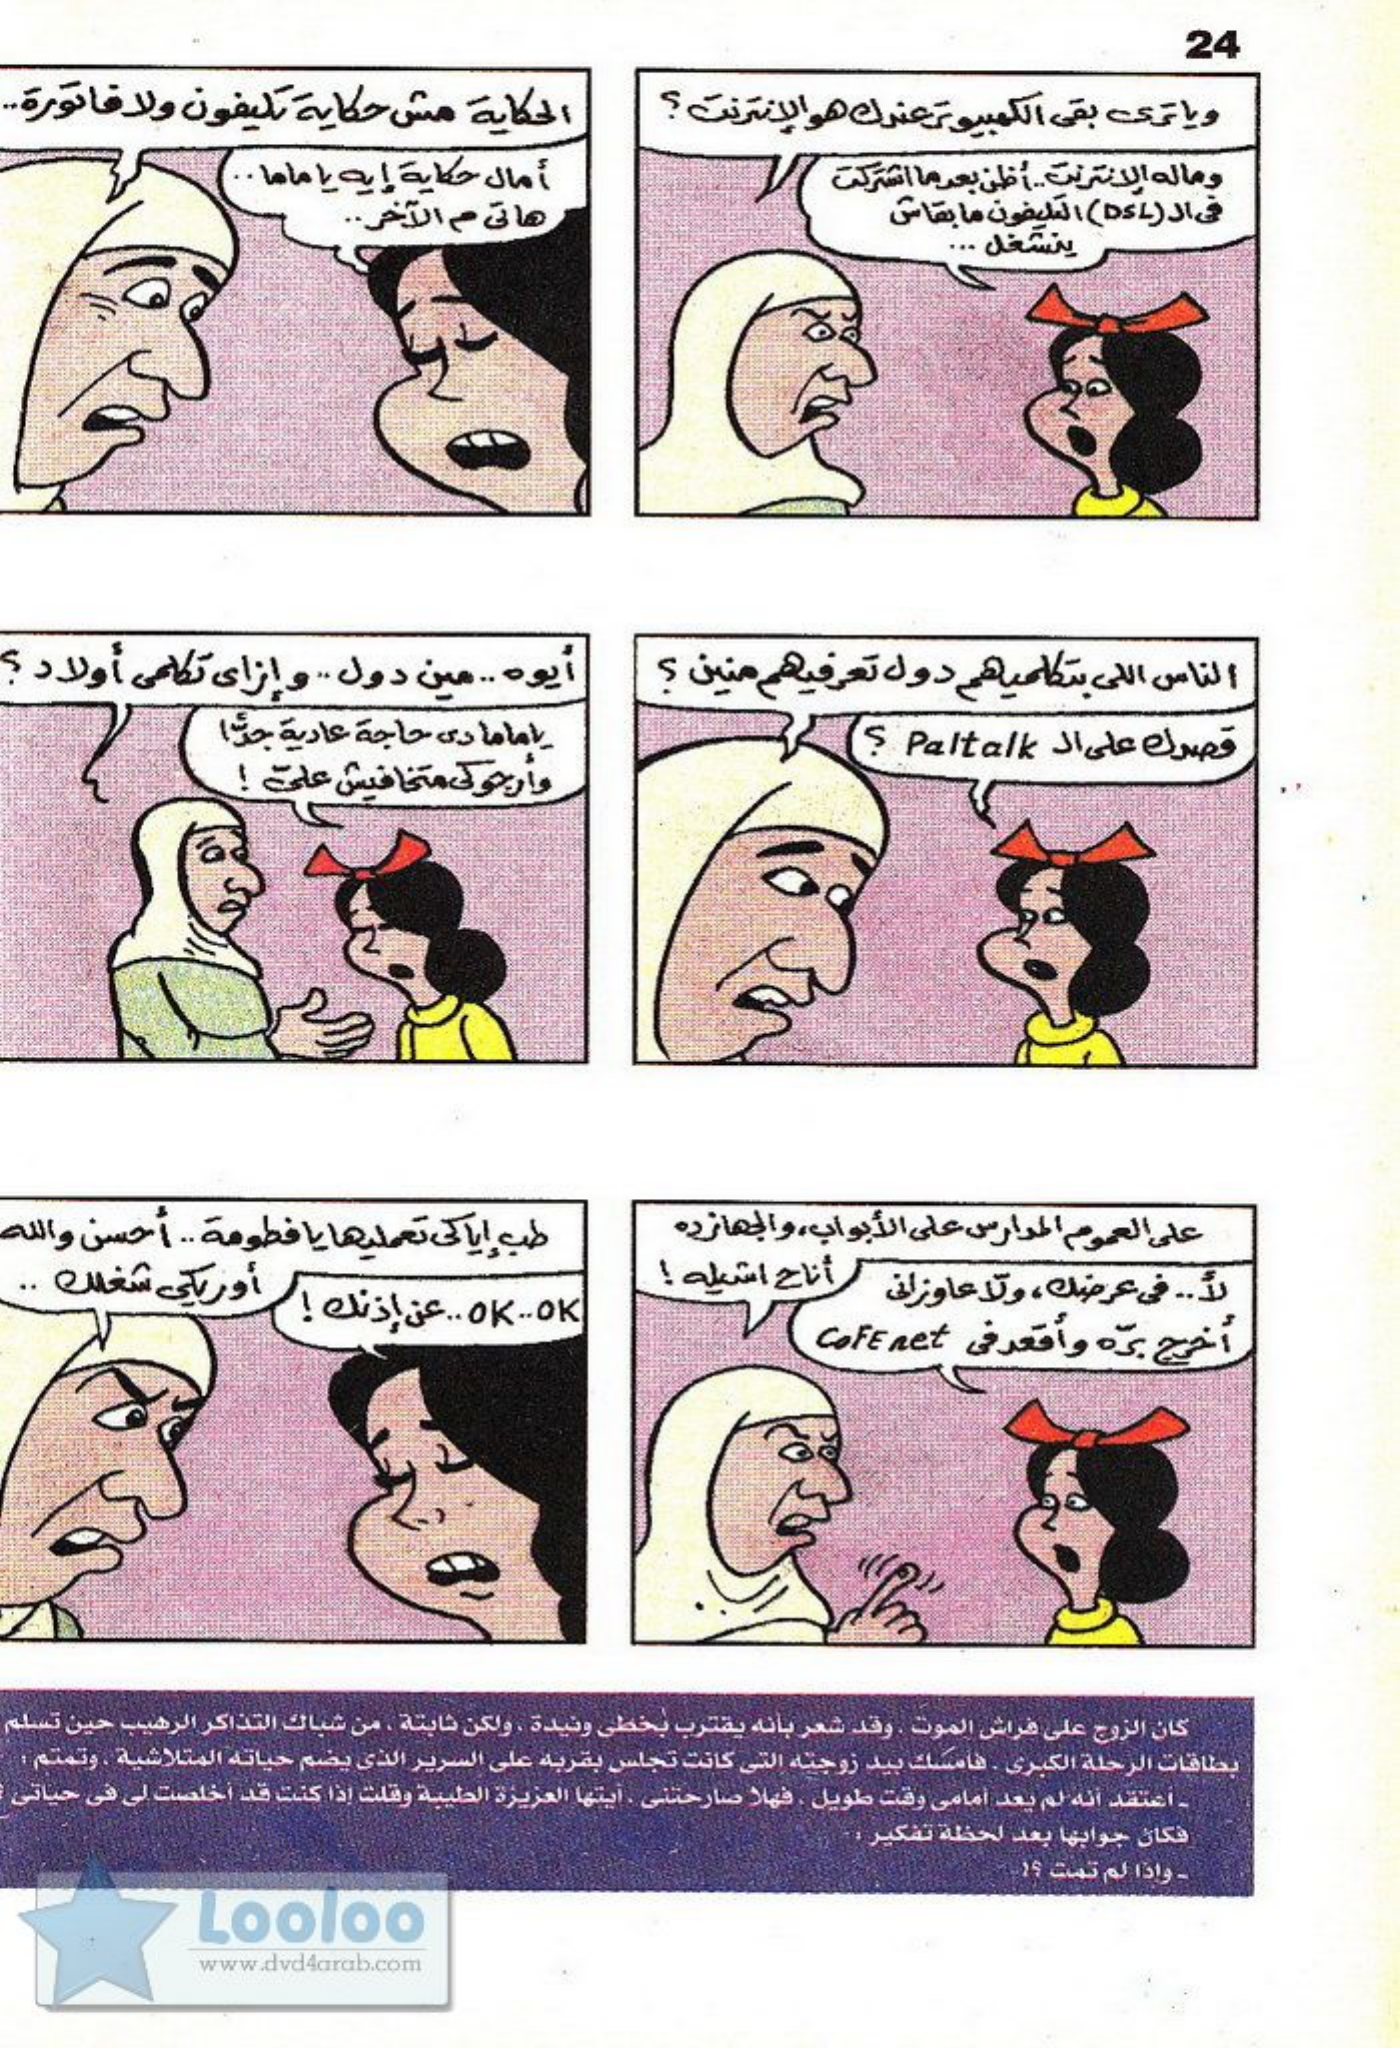 24
وياترى بقى الكمبيوتر عندك هو الإنترنت ؟
وماله الإنترنت.. أظن بعد ما اشتركت
فى الـ (DSL) التليفون ما بقاش
ينشغل ...
الحكاية مش حكاية تليفون ولا فاتورة..
أمال حكاية إيه ياماما..
هاتى م الآخر..
الناس اللى بتكلميهم دول تعرفيهم منين ؟
قصدك على الـ Paltalk ؟
أيوه .. مين دول .. وإزاى تكلمى أولاد ؟
ياماما دى حاجة عادية جدًّا
وأرجوكى متخافيش علىّ !
على العموم المدارس على الأبواب، والجهاز ده
أناح اشيله !
لأ .. فى عرضك، ولّا عاوزانى
أخرج برّه وأقعد فى CoFE net
طب إياكى تعمليها يا فطومة .. أحسن والله
أوريكى شغلك ..
OK..OK.. عن إذنك !
كان الزوج على فراش الموت . وقد شعر بأنه يقترب بخطى ونيدة . ولكن ثابتة . من شباك التذاكر الرهيب حين تسلم
بطاقات الرحلة الكبرى . فأمسك بيد زوجته التى كانت تجلس بقربه على السرير الذى يضم حياته المتلاشية . وتمتم :
ـ أعتقد أنه لم يعد أمامى وقت طويل . فهلا صارحتنى . أيتها العزيزة الطيبة وقلت إذا كنت قد أخلصت لى فى حياتى ؟
فكان جوابها بعد لحظة تفكير :
ـ وإذا لم تمت ؟!
Looloo
www.dvd4arab.com